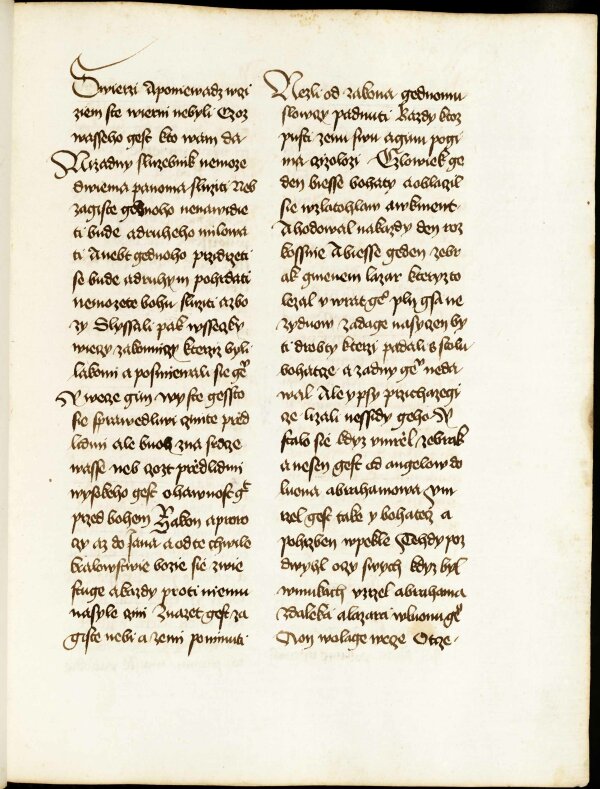 Swierzi Aponiewadz wczi
ziem ste wierni nebyli Czoz
wasseho gest kto wam da
Nizadny sluzebnik nemoze
dwiema panoma sluziti Neb
zagiste gednoho nenawidie
ti bude adruheho milowa
ti Anebt gednoho przidrzeti
se bude adruhym pohrdati
nemozete bohu sluziti azbo
zy Slyssali pak wsseczky
wieczy zakonniczy kterziz byli
lakomi a posmiewali sie geͦ
Y wece gim wy ste gessto
sie sprawedliwi czinite przed
lidmi ale buoh zna srdcze
wasse neb czozt przedlidmi
wysokeho gest ohawnost gͭ
przed bohem Zakon aproro
czy az do Jana a od te chwile
kralowstwie bozie sie zwie
stuge akazdy proti niemu
nasyle czini Znazet gest za
giste nebi a zemi pominuti
Nezli od zakona gednomu
slowczy padnuti kazdy ktoz
pusti zenu swu aginu pogi
ma czizolozi Czlowiek ge
den biesse bohaty aoblaczil
sie wzlatohlaw awkment
Ahodowal nakazdy den roz
kossnie Abiesse geden zebr
ak gmenem lazar kteryzto
lezal v wrat geͦ pln gsa ne
zyduow zadage nasyczen by
ti drobty kterzi padali s stolu
bohatcze a zadny geͫ neda
wal Ale y psy przichazegi
cze lizali nesstidy geho Y
stalo sie kdyz vmrzel zebrak
a nesen gest od angelow do
luona abrahamowa Vm
rzel gest take y bohatecz a
pohrzben wpekle Tehdy poz
dwyhl oczy swych kdyz byl
wmukach vzrzel abrahama
zdaleka alazara wluonu geͦ
Aon wolage wecze Otcze